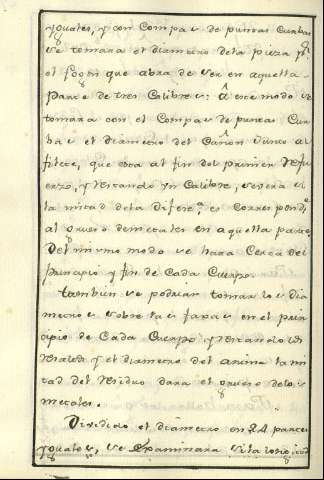 yguales, y con Compas de puntas Curbas
se tomara el diametro dela pieza p.r
el fogon que abra de ser en aquella
parte de tres Calibres: â este modo se
tomara con el Compas de puntas Cur
bas el diametro del Cañon Junto al
filete, que esta al fin del primer Refu
erzo, y restando Vn Calibre, se vera si
la mitad dela Difer.a es Correspond.te
al grueso de metales en aquella parte.
Del mismo modo se hara Cerca del
principio y fin de Cada Cuerpo.
tambien se podrian tomar los dia
metros sobre las faxas en el prin
cipio de Cada Cuerpo y restandoles
el diametro del anima la mi
tad del residuo dara el grueso delos
metales.
Dividido el diametro en 24 partes
yguales, se Examinara si la